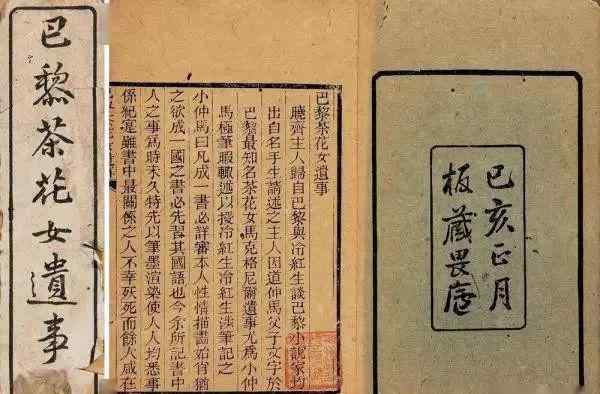 巴黎茶花女遺事
巴黎茶花女遺事
曉齋主人歸自巴黎與冷紅生談巴黎小說家均
出自名手生請述之主人因道仲馬父子文字於
巴黎最知名茶花女馬克格尼爾遺事尤爲小仲
馬極筆暇輒述以授冷紅生冷紅生涉筆記之
小仲馬曰凡成一書必詳審本人性情描畫始肖猶
之欲成一國之書必先習其國語也今余所記書中
人之事爲時未久特先以筆墨渲染使人人均悉事
係紀實雖書中最關係之人不幸殀死而餘人咸在
己亥正月
板藏畏廬